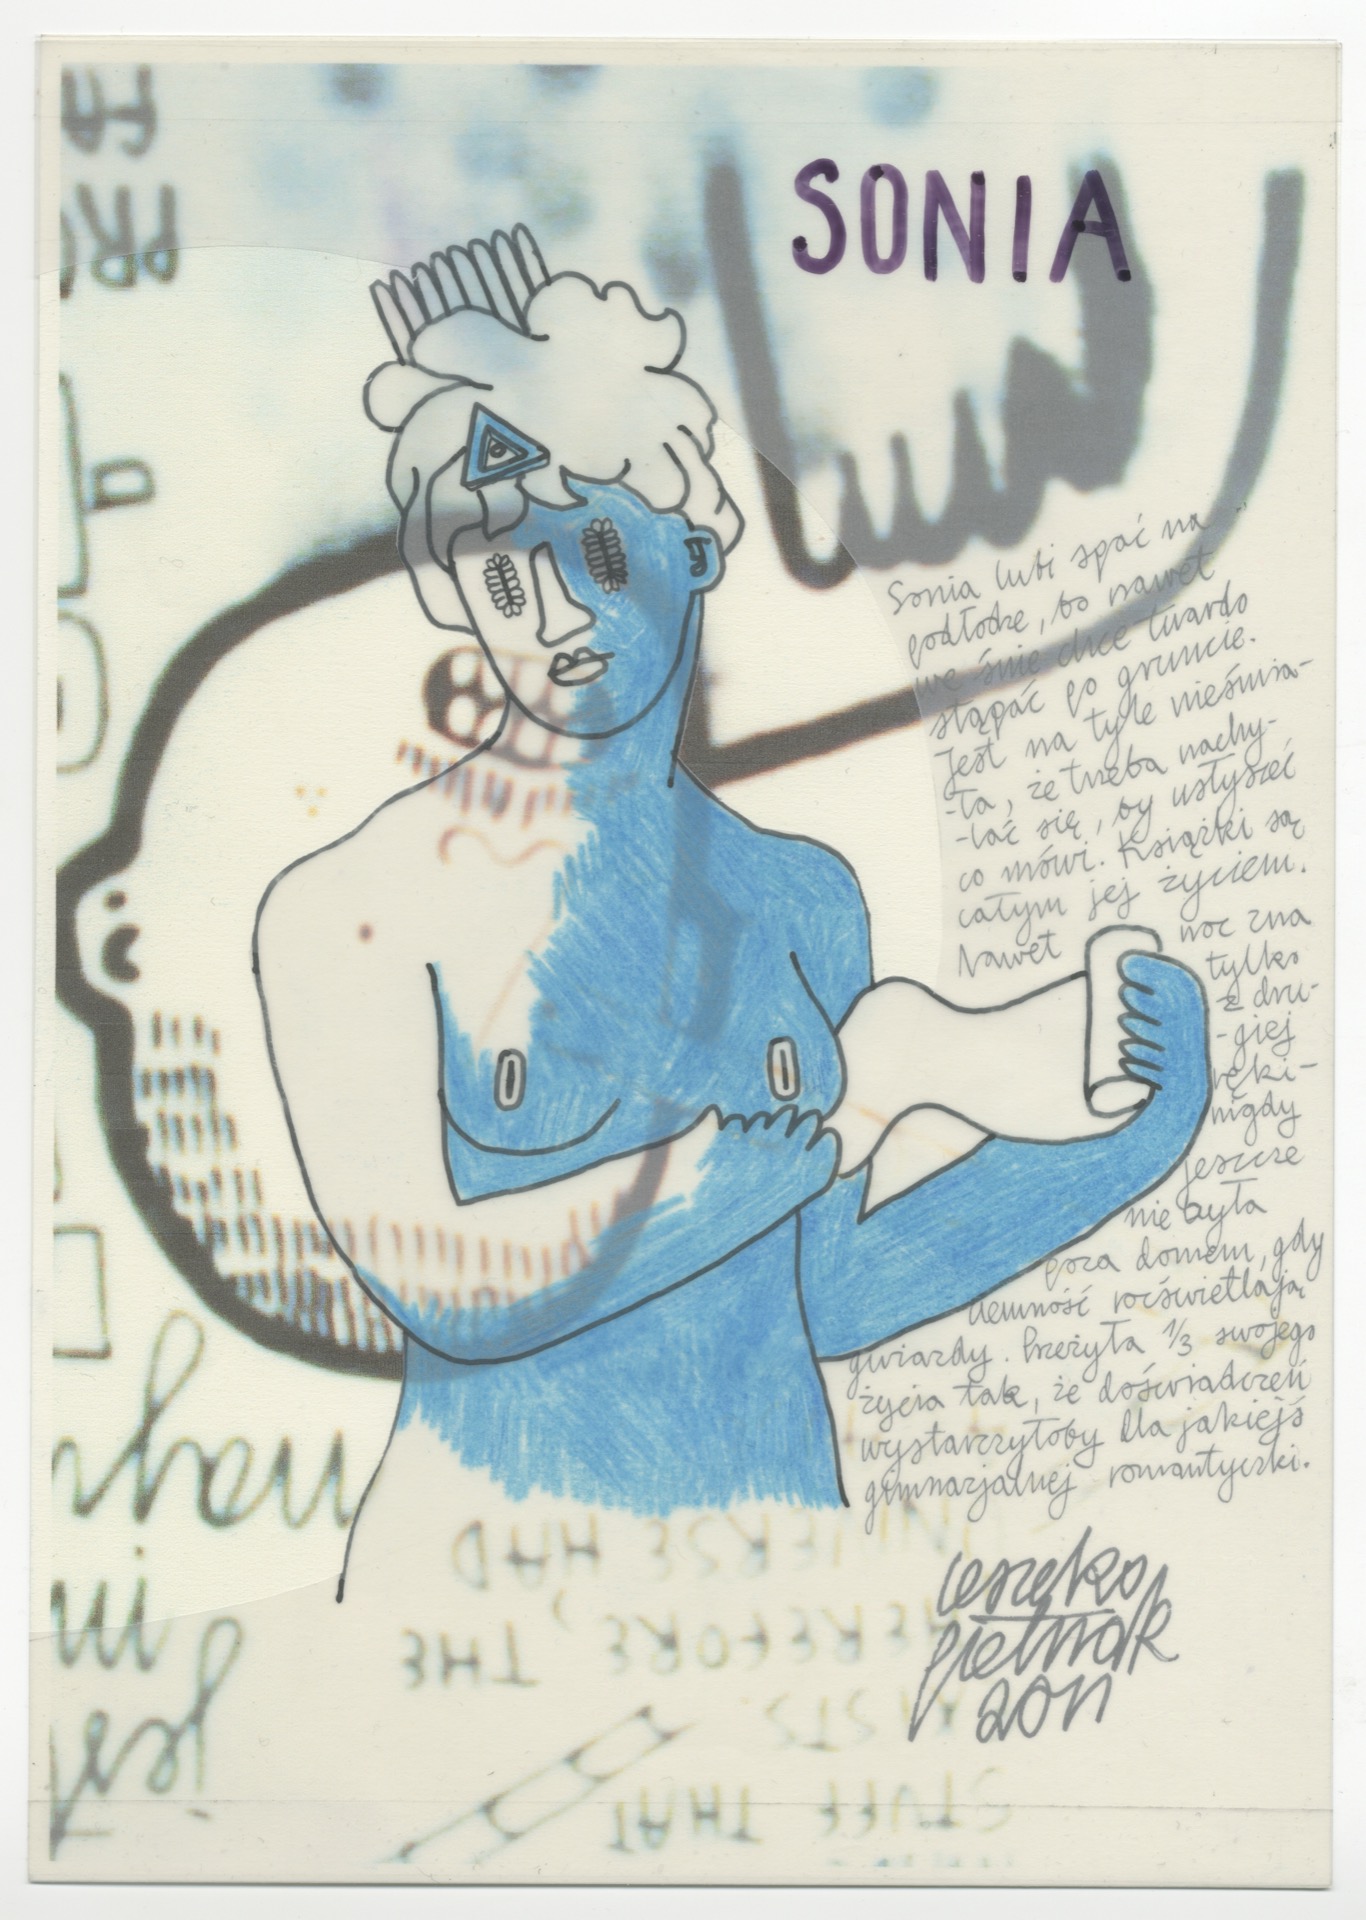 SONIA
Sonia lubi spać na
podłodze, bo nawet
we śnie chce twardo
stąpać po gruncie.
Jest na tyle nieśmia-
-ła, że trzeba nachy-
-lać się, by usłyszeć
co mówi. Książki są
całym jej życiem.
Nawet noc zna
tylko
z dru-
-giej
ręki-
nigdy
jeszcze
nie była
poza domem, gdy
ciemność rozświetlają
gwiazdy. Przeżyła 1/3 swojego
życia tak, że doświadczeń
wystarczyłoby dla jakiejś
gimnazjalnej romantyczki.
2011
FA
PRO
UNIVERSE HAD
THEREFORE, THE
STUFF THAT
jest